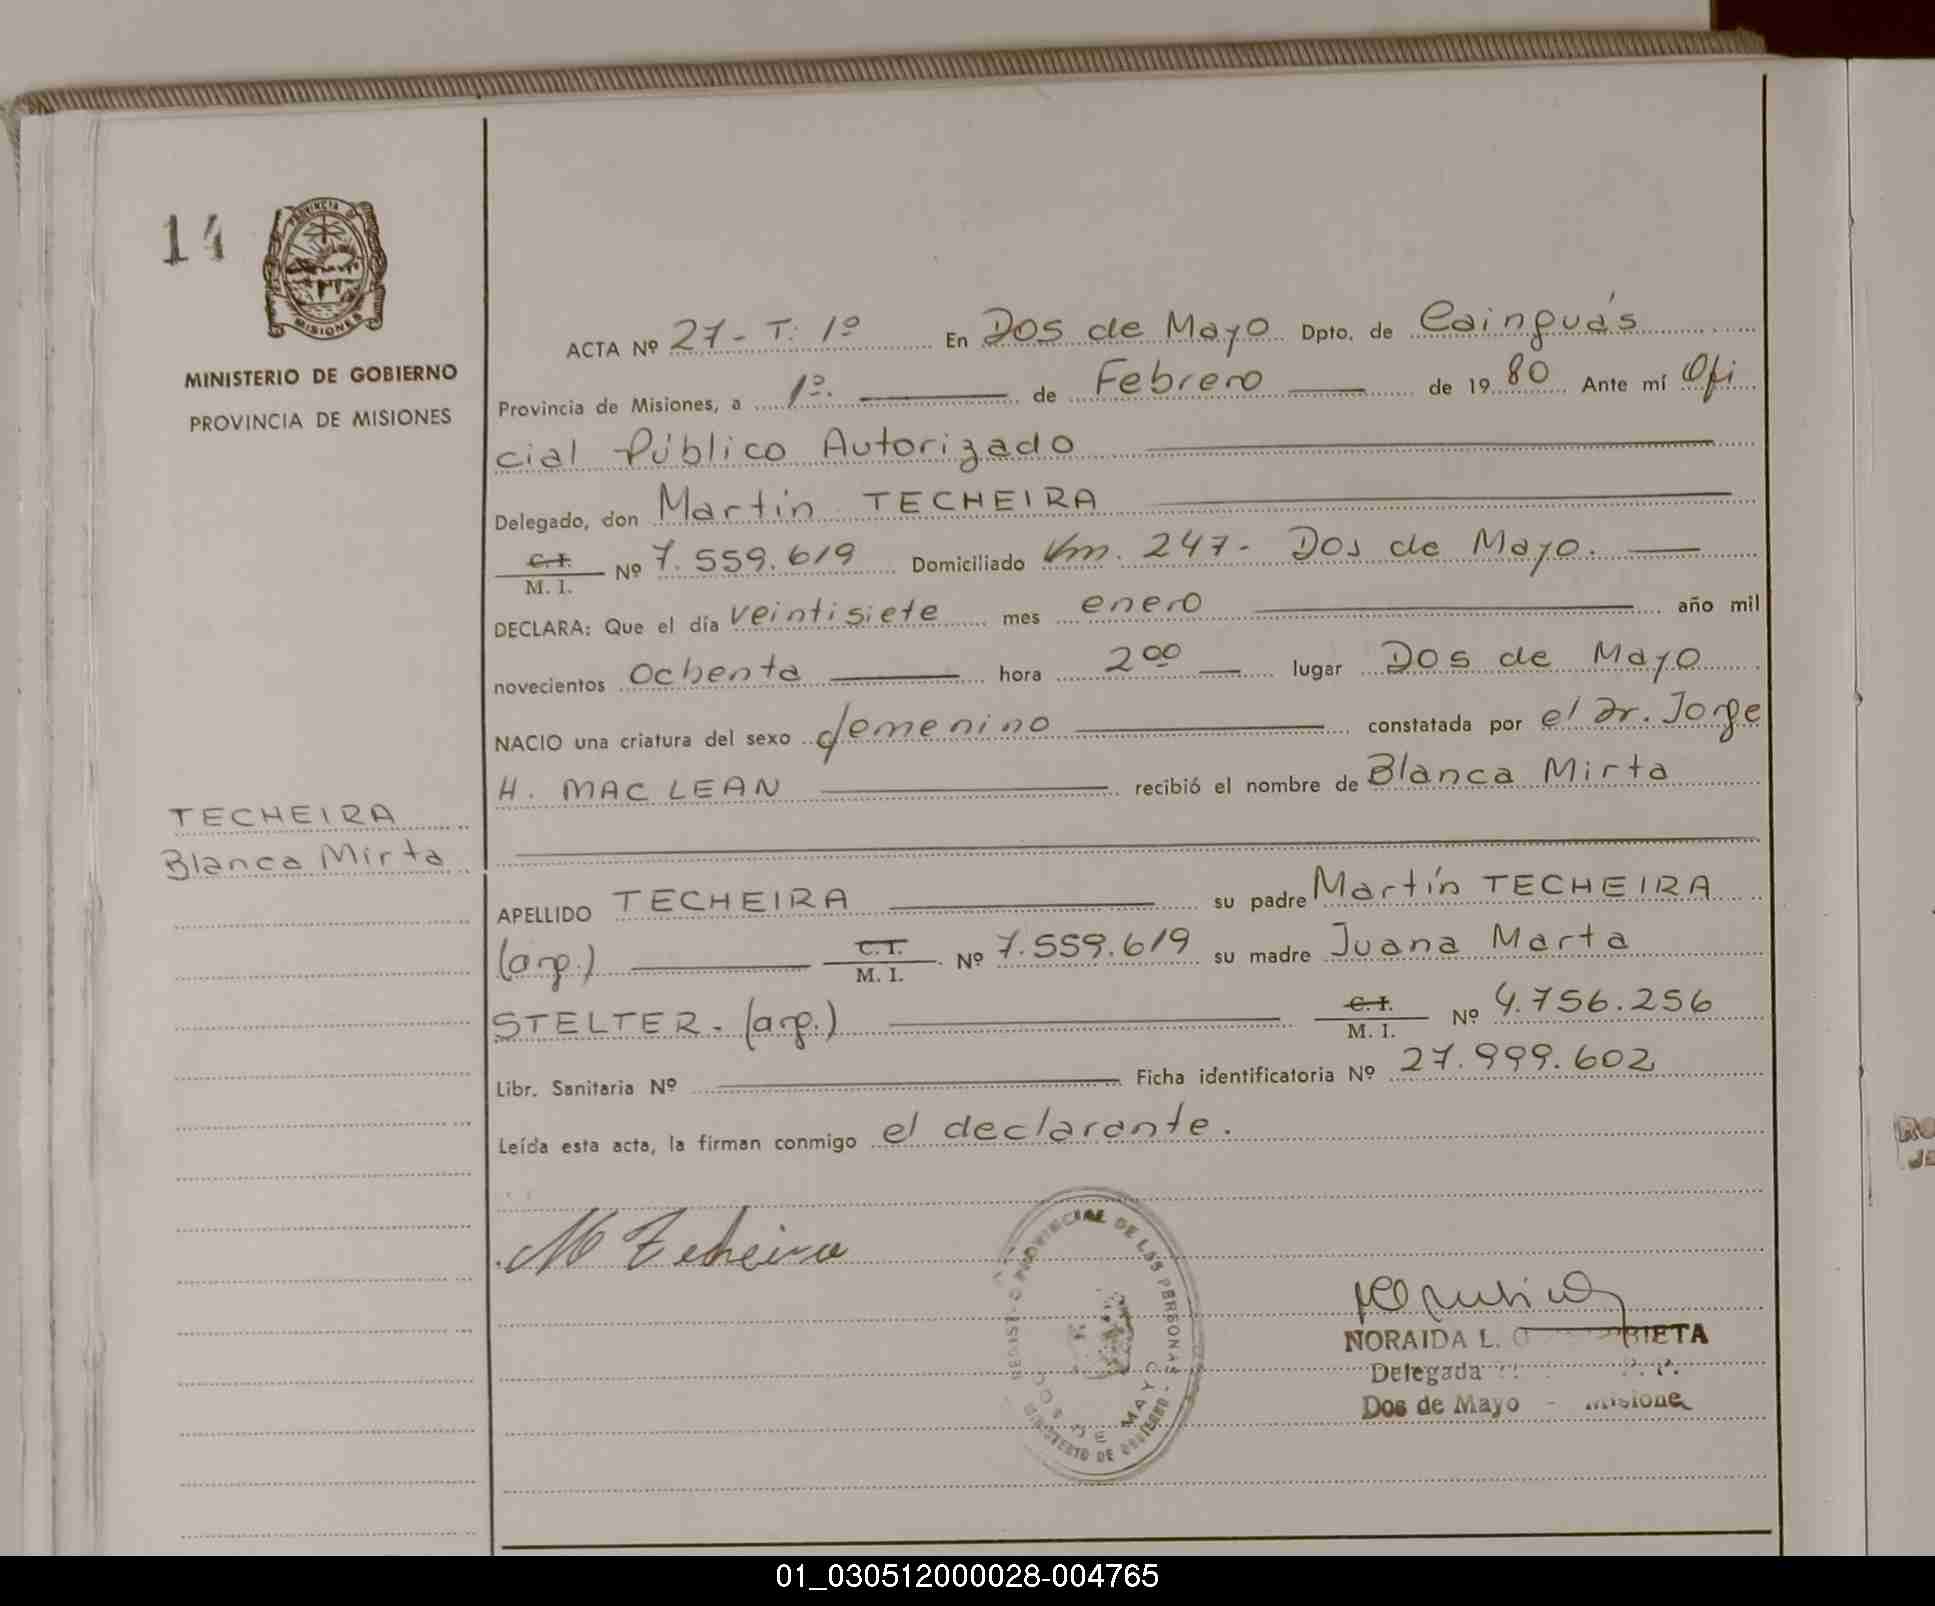 14
PROVINCIA DE
MISIONES
MINISTERIO DE GOBIERNO
PROVINCIA DE MISIONES
ACTA Nº 27 - T: 1º En Dos de Mayo Dpto. de Cainguás
Provincia de Misiones, a 1º. de Febrero de 1980 Ante mí Ofi
cial Público Autorizado
Delegado, don Martín TECHEIRA
C.I.
M. I. Nº 7.559.619 Domiciliado Km. 247 - Dos de Mayo.
DECLARA: Que el día veintisiete mes enero año mil
novecientos ochenta hora 2 00 lugar Dos de Mayo
NACIO una criatura del sexo femenino constatada por el Dr. Jorge
H. MAC LEAN recibió el nombre de Blanca Mirta
TECHEIRA
Blanca Mirta
APELLIDO TECHEIRA su padre Martín TECHEIRA
(arg.) C.I.
M. I. Nº 7.559.619 su madre Juana Marta
STELTER - (arg.) C.I.
M. I. Nº 4.756.256
Libr. Sanitaria Nº Ficha identificatoria Nº 27.999.602
Leída esta acta, la firman conmigo el declarante.
M Techeira
REGISTRO PROVINCIAL DE LAS PERSONAS
DOS DE MAYO
MINISTERIO DE GOBIERNO
NORAIDA L.
Delegada
Dos de Mayo - Misiones
01_030512000028-004765